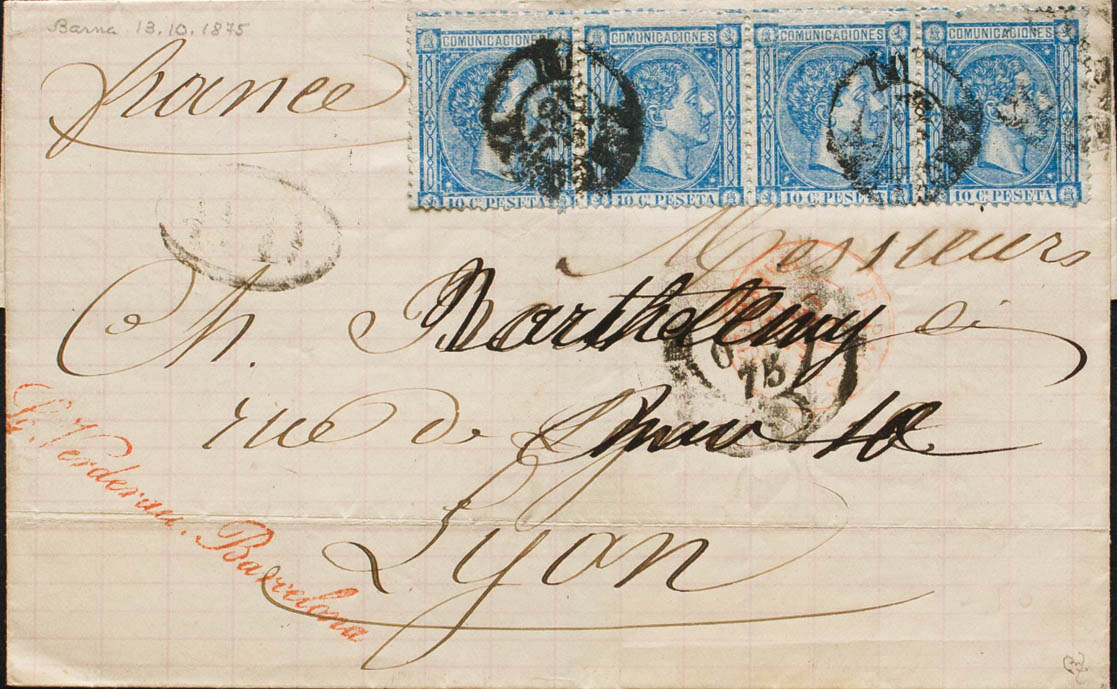 Barna 13.10.1875
COMUNICACIONES COMUNICACIONES COMUNICACIONES COMUNICACIONES
10 Cs PESETA 10 Cs PESETA 10 Cs PESETA 10 Cs PESETA
france
Messieurs
Ch. Barthelemy
75
rue de 10
Lyon
Verderau. Barcelona